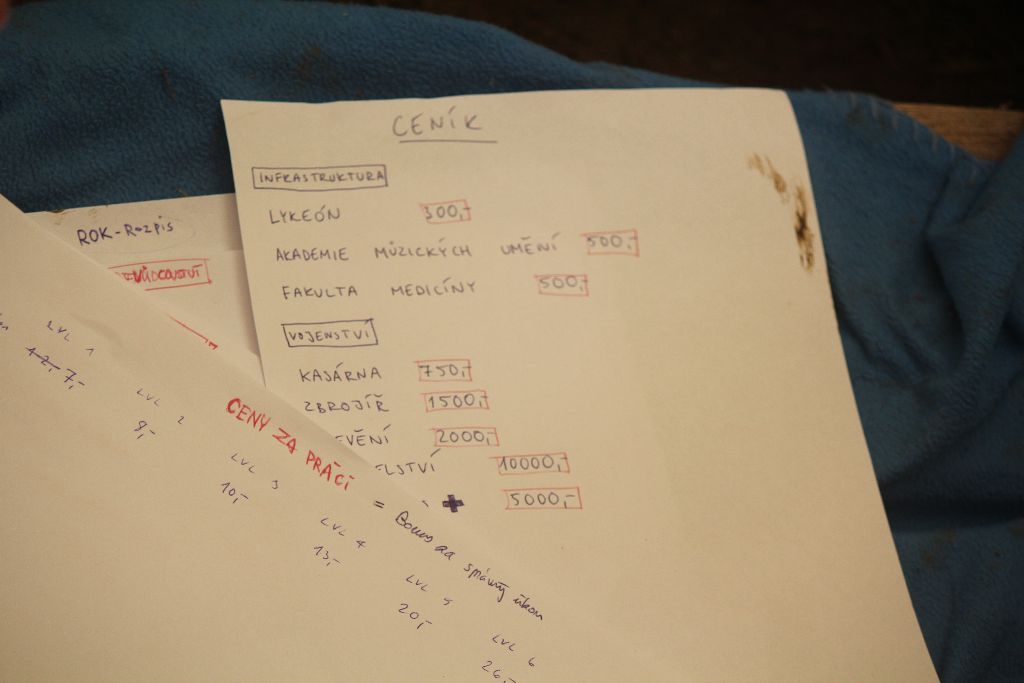 CENÍK
INFRASTRUKTURA
LYKEÓN 300,-
AKADEMIE MÚZICKÝCH UMĚNÍ 500,-
FAKULTA MEDICÍNY 500,-
VOJENSTVÍ
KASÁRNA 750,-
ZBROJÍŘ 1500,-
EVĚNÍ 2000,-
ELSTVÍ 10000,-
5000,-
ROK-Rozpis
CENY ZA PRÁCI = Bonus za správný úkon
LVL 1
12,- 7,-
LVL 2
8,-
LVL 3
10,-
LVL 4
13,-
LVL 5
20,-
LVL 6
26,-